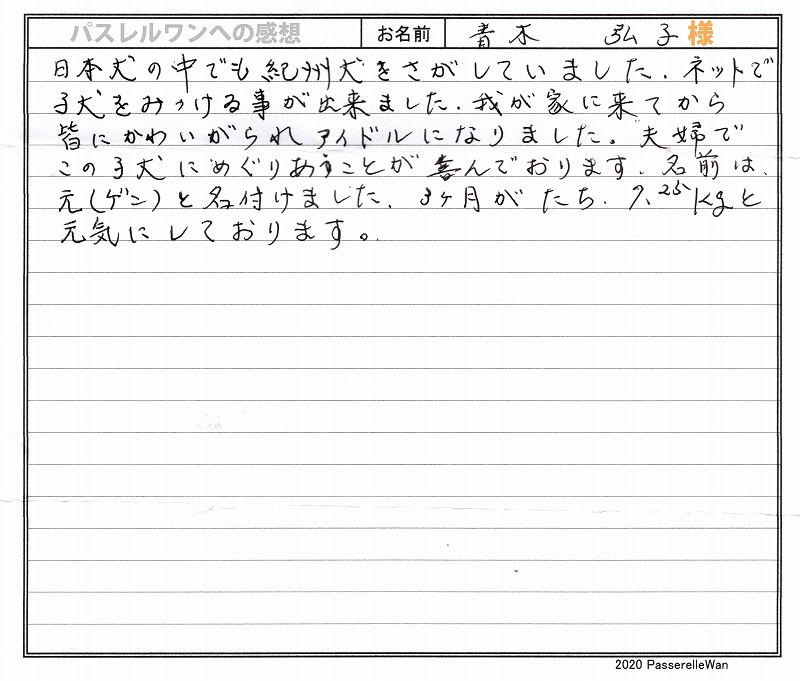 パスレルワンへの感想 お名前 青木 弘子 様
日本犬の中でも紀州犬をさがしていました．ネットで
子犬をみつける事が出来ました．我が家に来てから
皆にかわいがられアイドルになりました。夫婦で
この子犬にめぐりあうことが喜んでおります．名前は、
元(ゲン)と名付けました．3ヶ月がたち．7.25Kgと
元気にしております。
2020 PasserelleWan